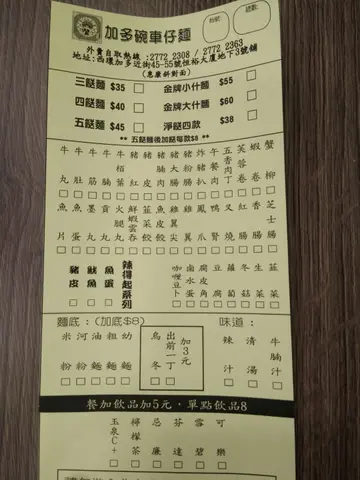 加多碗車仔麵
總數:
外賣自取熱線:2772 2308 / 2772 2363
地址:西環加多近街45-55號恒裕大廈地下3號鋪
(惠康斜對面)
三餸麵 $35 金牌小什麵 $55
四餸麵 $40 金牌大什麵 $60
五餸麵 $45 淨餸四款 $38
** 五餸麵後加餸每款$8 **
牛丸
牛肚
牛筋
牛腩
牛栢葉
豬紅
豬皮
豬大腸
豬粉腸
炸豬扒
午餐肉
五香肉丁
芙蓉卷
蝦卷
蟹柳
魚片
魚蛋
墨丸
貢丸
火腿丸
鮮蝦雲吞
韮菜餃
魚皮餃
雞翼尖
雞翼
鳳爪
鴨腎
叉燒
紅腸
香腸
芝士腸
豬皮
魷魚
魚蛋
辣得起系列
咖喱豆卜
鹵水蛋
腐皮角
豆腐
蘿蔔
冬菇
生菜
韮菜
麵底:(加底$8)
米粉
河粉
油麵
粗麵
幼麵
烏冬
出前一丁
加3元
味道:
辣汁
清湯
牛腩汁
餐加飲品加5元,單點飲品8
玉泉C+
檸檬茶
忌廉
芬達
雪碧
可樂